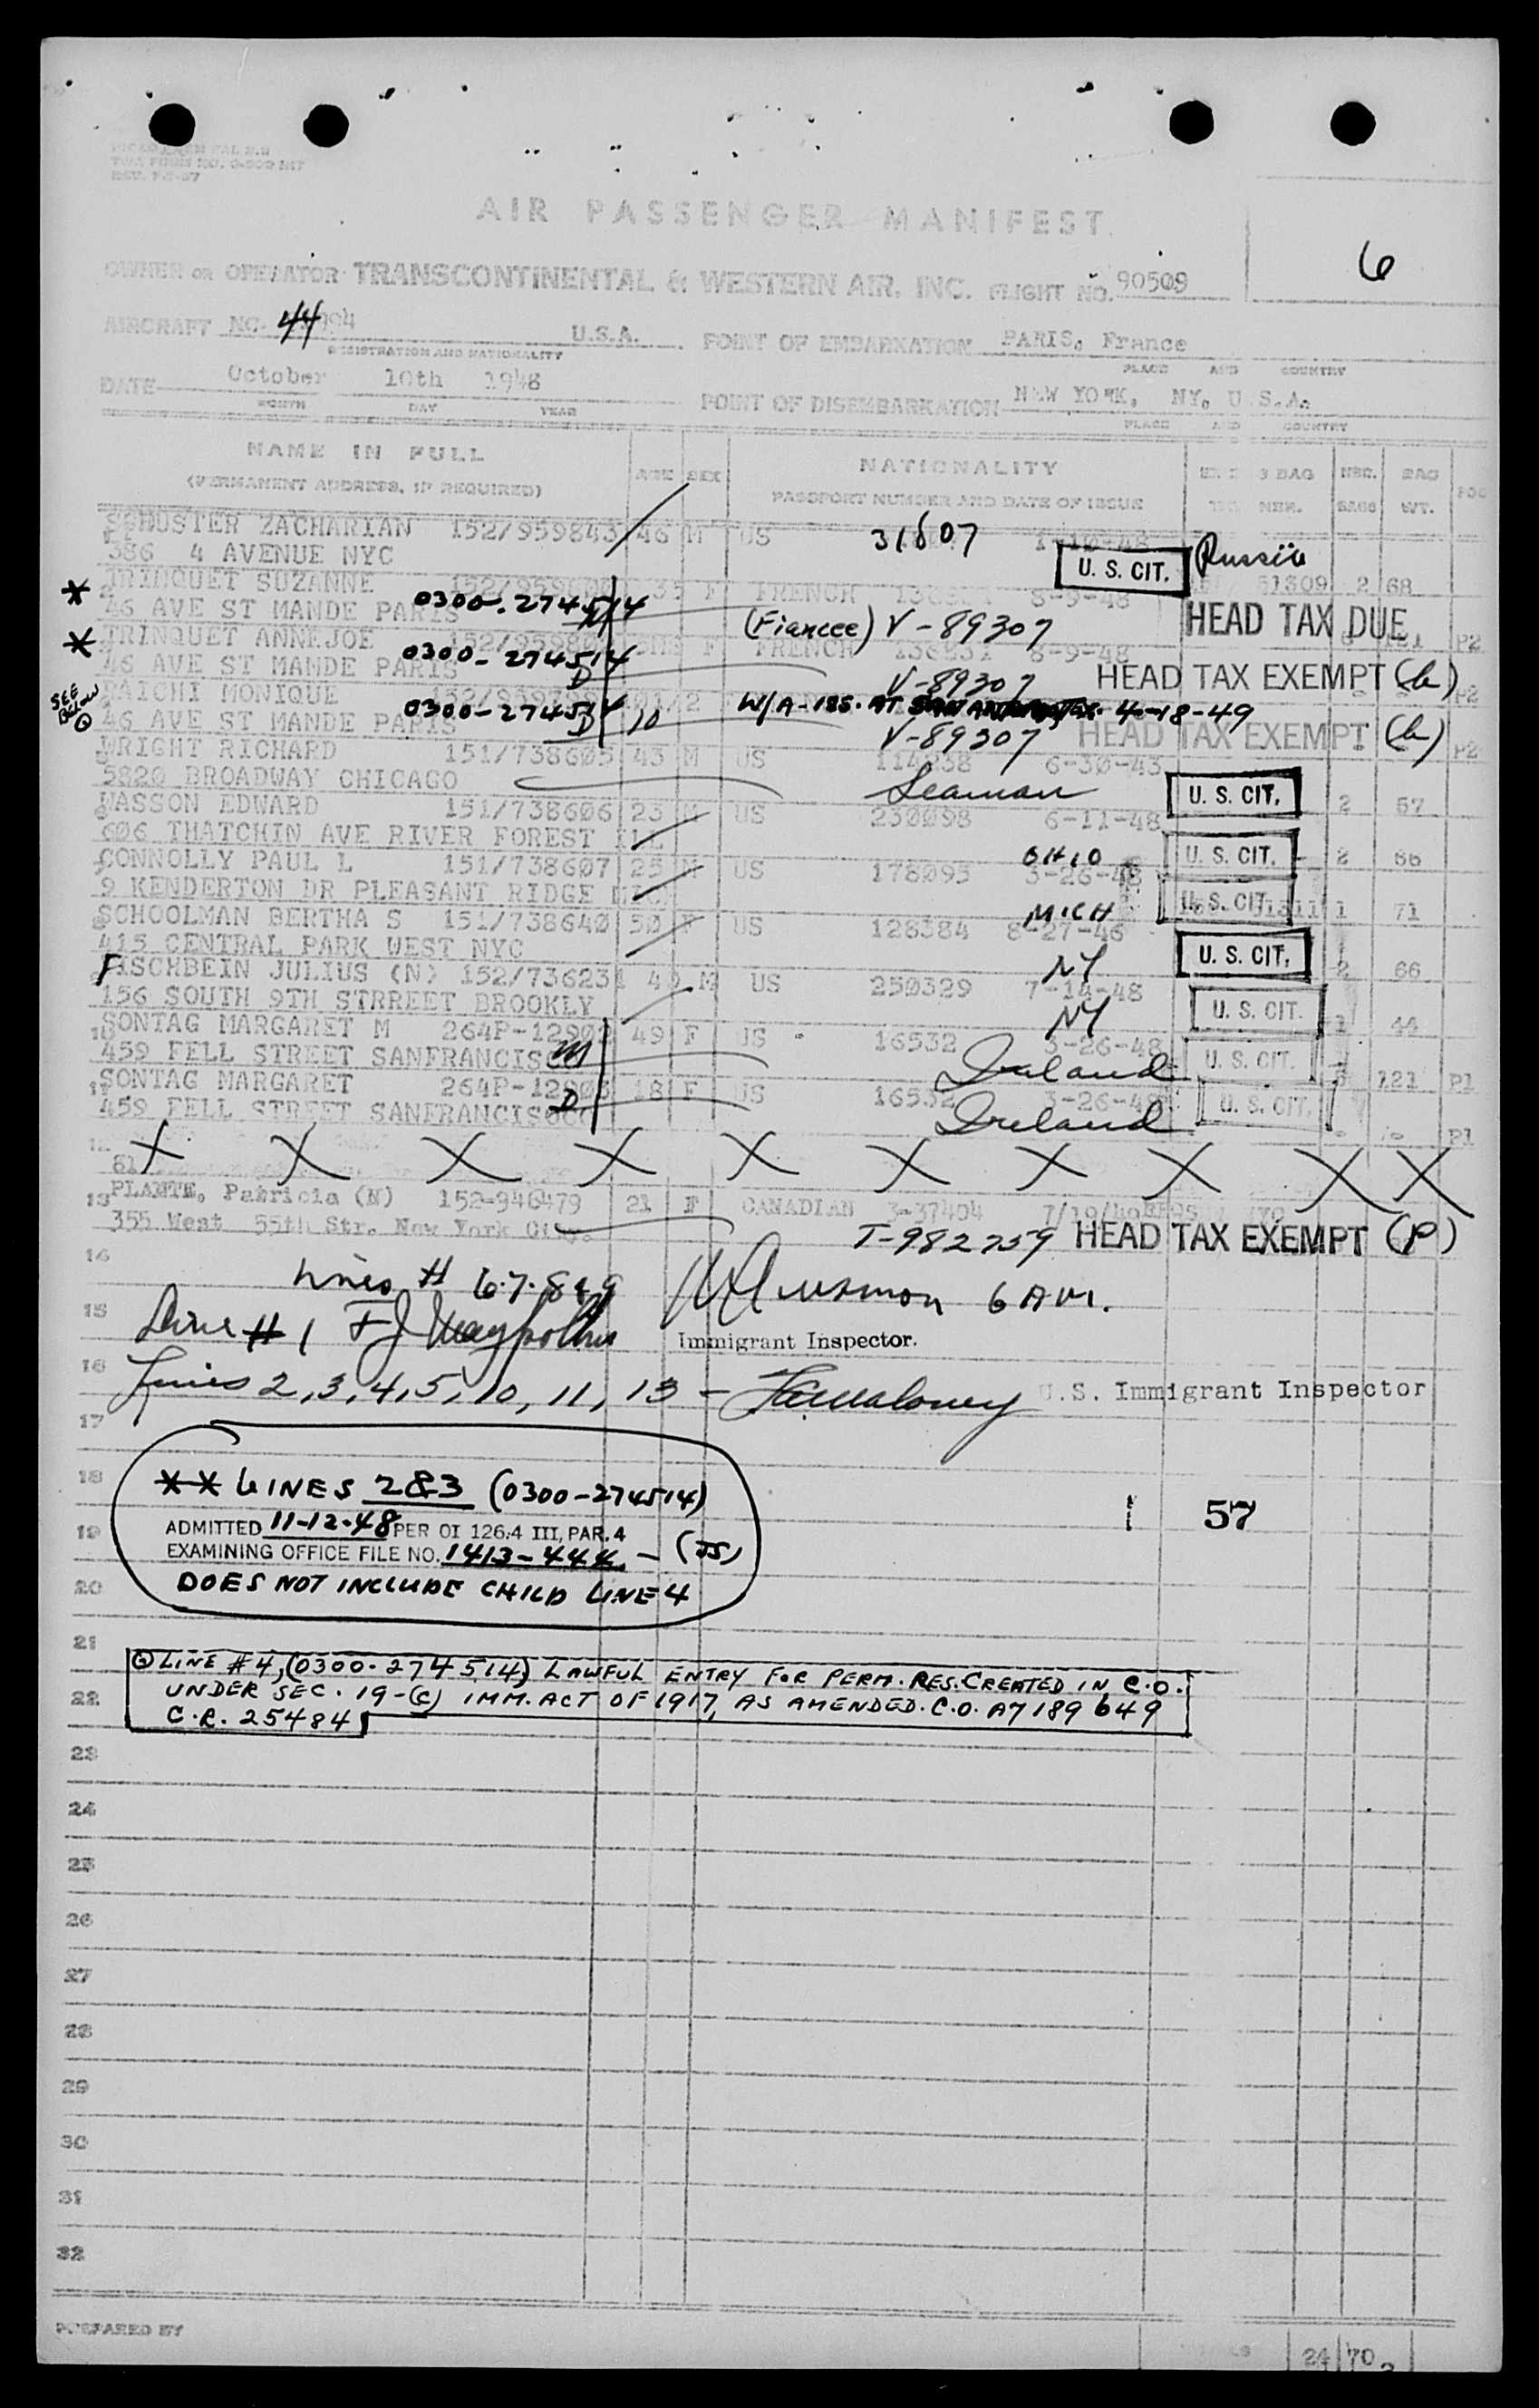 TWA FORM NO.
AIR PASSENGER MANIFEST
6
OWNER OR OPERATOR TRANSCONTINENTAL & WESTERN AIR, INC. FLIGHT NO. 90509
AIRCRAFT NC- 44 U.S.A. POINT OF EMBARKATION PARIS, France
REGISTRATION AND NATIONALITY PLACE AND COUNTRY
DATE October 10th 1948
MONTH DAY YEAR
POINT OF DISEMBARKATION NEW YORK, NY, U.S.A.
PLACE AND COUNTRY
NAME IN FULL AGE SEX NATIONALITY BAG NBR. BAG
(PERMANENT ADDRESS, IF REQUIRED) PASSPORT NUMBER AND DATE OF ISSUE NBR. BAGS WT.
SCHUSTER ZACHARIAN 152/959843 46 M US 31807 1-10-48 U. S. CIT. Russia
386 4 AVENUE NYC
* TRINQUET SUZANNE 0300-274514 F FRENCH 8-9-48 51309 2 68
46 AVE ST MANDE PARIS (Fiancee) V-89307 HEAD TAX DUE
* TRINQUET ANNEJOE 0300-274514 F FRENCH 8-9-48 P2
46 AVE ST MANDE PARIS D V-89307 HEAD TAX EXEMPT P2
SEE BELOW MONIQUE 0300-274514 W/A-185. AT SAN ANTONIO TEX. 4-18-49
46 AVE ST MANDE PARIS D 10 V-89307 HEAD TAX EXEMPT P2
WRIGHT RICHARD 151/738605 43 M US 6-30-43
5820 BROADWAY CHICAGO Seaman U. S. CIT.
WASSON EDWARD 151/738606 23 M US 230098 6-11-48 2 57
606 THATCHIN AVE RIVER FOREST ILL OHIO U. S. CIT.
CONNOLLY PAUL L 151/738607 25 M US 178095 3-26-48 2 66
9 KENDERTON DR PLEASANT RIDGE MICH U. S. CIT.
SCHOOLMAN BERTHA S 151/738640 50 F US 128384 8-27-46 1 71
415 CENTRAL PARK WEST NYC NY U. S. CIT.
FISCHBEIN JULIUS (N) 152/736231 M US 250329 7-14-48 2 66
156 SOUTH 9TH STRREET BROOKLY NY U. S. CIT.
10 SONTAG MARGARET M 49 F US 16532 3-26-48 44
459 FELL STREET SANFRANCISCO M Ireland U. S. CIT.
11 SONTAG MARGARET 18 F US 16532 3-26-48 121 P1
459 FELL STREET SANFRANCISCO D Ireland U. S. CIT. P1
12 X X X X X X X X X X
13 PLANTE, Patricia (N) 152-946479 21 F CANADIAN 3-37404
355 West 55th Str. New York City. T-982759 HEAD TAX EXEMPT (P)
14
Lines # 6·7·8&9 6 AM.
15 Line #1 Immigrant Inspector.
16 Lines 2,3,4,5,10,11,13 - U.S. Immigrant Inspector
17
18 ** LINES 2&3 (0300-274514)
19 ADMITTED 11-12-48 PER OI 126.4 III, PAR. 4
EXAMINING OFFICE FILE NO. 1413-444 - (JS)
57
20 DOES NOT INCLUDE CHILD LINE 4
21 LINE #4, (0300-274514) LAWFUL ENTRY FOR PERM. RES. CREATED IN C.O.
22 UNDER SEC. 19-(C) IMM. ACT OF 1917, AS AMENDED. C.O. A7189649
C.R. 25484
23
24
25
26
27
28
29
30
31
32
PREPARED BY
24 70